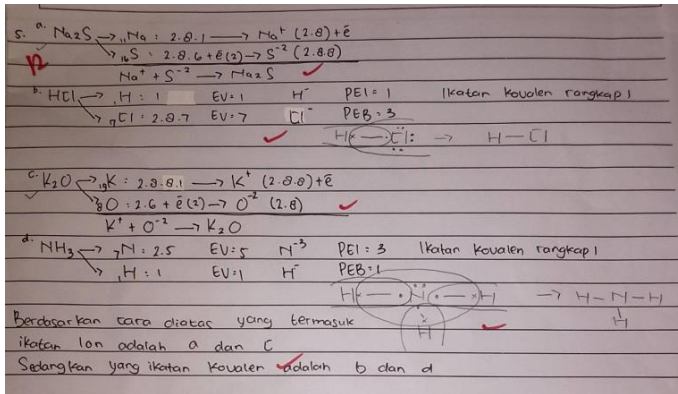 5. a. Na2S → 11Na : 2.8.1 → Na+ (2.8) + ē
12
→ 16S : 2.8.6 + ē(2) → S-2 (2.8.8)
Na+ + S-2 → Na2S
b. HCl → 1H : 1 EV = 1 H- PEI = 1 Ikatan Kovalen rangkap 1
→ 7Cl : 2.8.7 EV = 7 Cl- PEB = 3
H × — · Cl : → H — Cl
c. K2O → 19K : 2.8.8.1 → K+ (2.8.8) + ē
→ 8O : 2.6 + ē(2) → O-2 (2.8)
K+ + O-2 → K2O
d. NH3 → 7N : 2.5 EV = 5 N-3 PEI = 3 Ikatan Kovalen rangkap 1
→ 1H : 1 EV = 1 H- PEB = 1
H × — · N · — × H → H – N – H
H H
Berdasarkan cara diatas yang termasuk
ikatan Ion adalah a dan C
Sedangkan yang ikatan Kovalen adalah b dan d